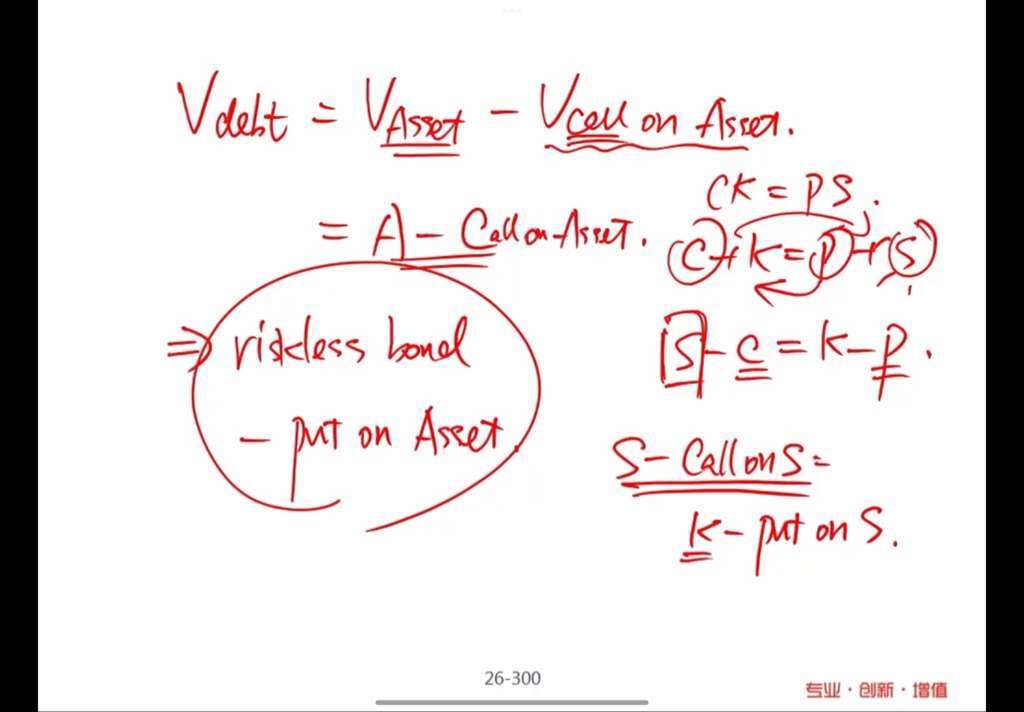 Vdebt = VAsset - Vcall on Asset.
= A - Call on Asset.
⇒ riskless bond
- put on Asset
CK = PS.
C + K = P + S
S - C = K - P.
S - Call on S =
K - put on S.
26-300
专业·创新·增值